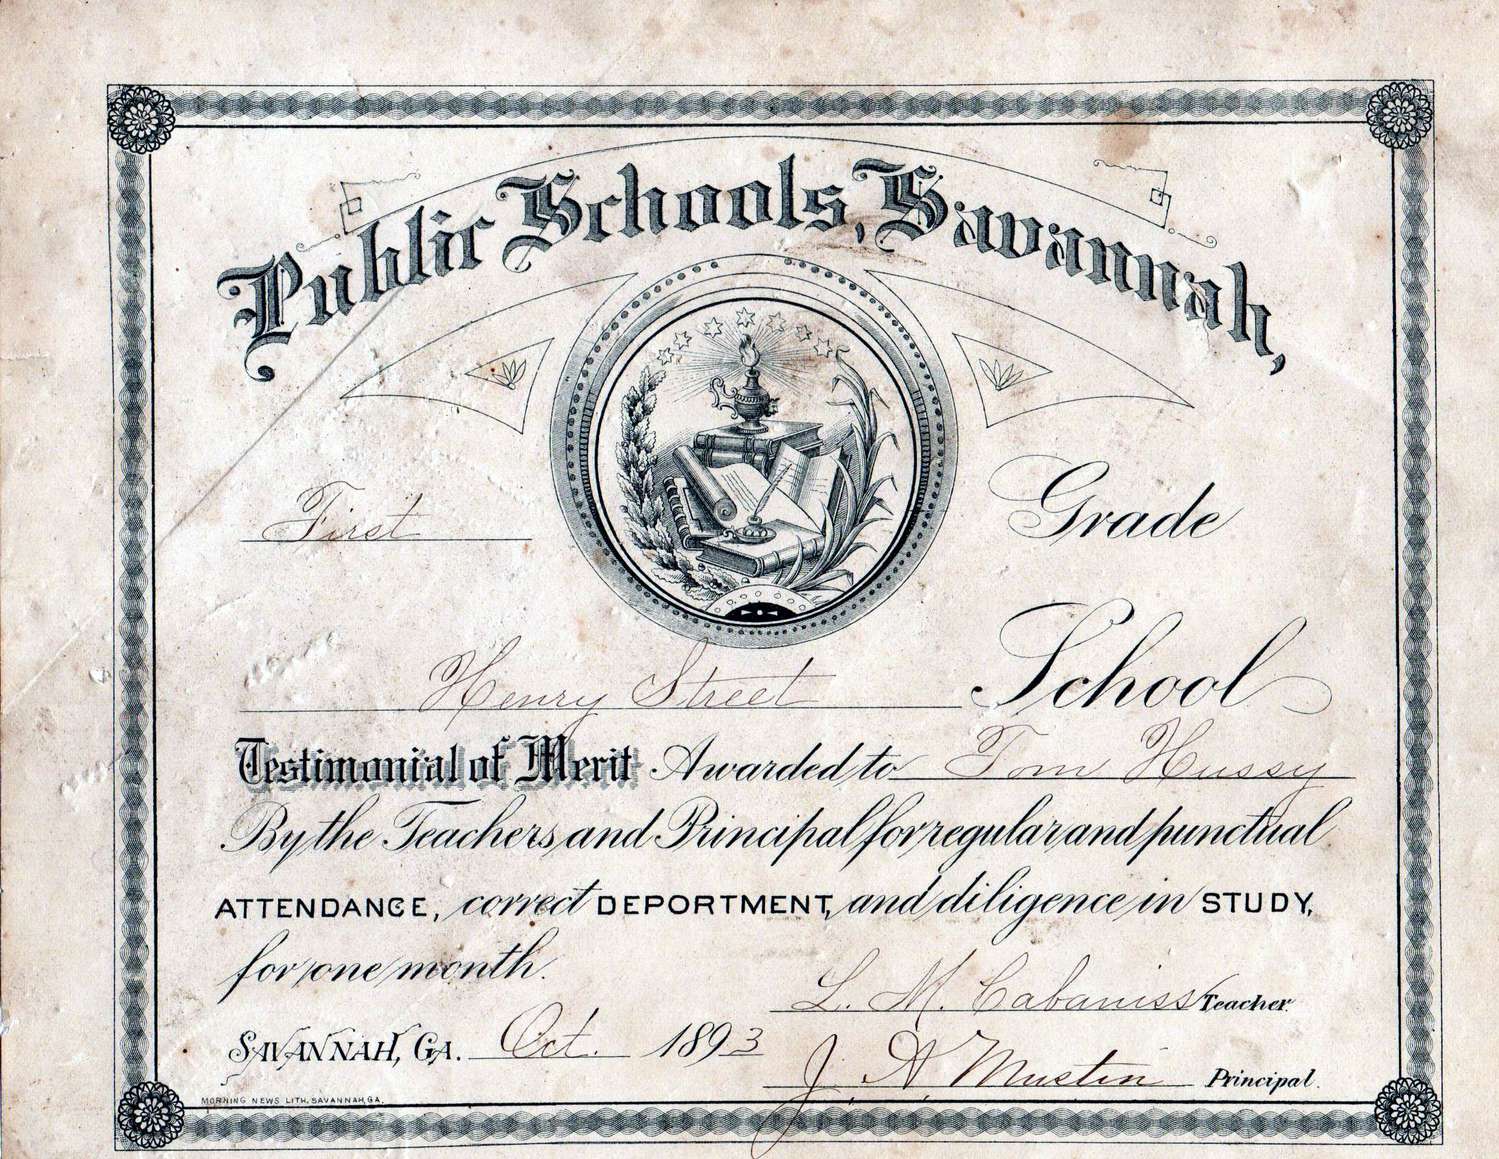 Public Schools, Savannah,
First Grade
Henry Street School
Testimonial of Merit Awarded to Tom Hussy
By the Teachers and Principal for regular and punctual
ATTENDANCE, correct DEPORTMENT, and diligence in STUDY,
for one month.
L. M. Cabaniss Teacher.
SAVANNAH, GA. Oct. 1893
J. A. Mustin Principal.
MORNING NEWS LITH. SAVANNAH, GA.